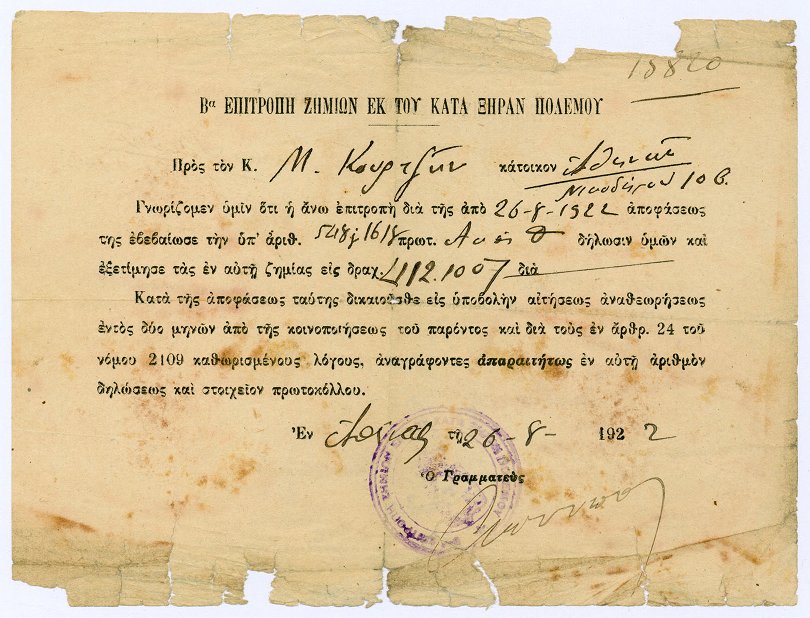 15820
Βα ΕΠΙΤΡΟΠΗ ΖΗΜΙΩΝ ΕΚ ΤΟΥ ΚΑΤΑ ΞΗΡΑΝ ΠΟΛΕΜΟΥ
Πρὸς τὸν Κ. Μ. Κουρτζῆν κάτοικον Ἀθηνῶν
10 β.
Γνωρίζομεν ὑμῖν ὅτι ἡ ἄνω ἐπιτροπὴ διὰ τῆς ἀπὸ 26-8-1922 ἀποφάσεως
της ἐβεβαίωσε τὴν ὑπ' ἀριθ. πρωτ. δήλωσιν ὑμῶν καὶ
ἐξετίμησε τὰς ἐν αὐτῇ ζημίας εἰς δραχ. 112.100 διὰ
Κατὰ τῆς ἀποφάσεως ταύτης δικαιοῦσθε εἰς ὑποβολὴν αἰτήσεως ἀναθεωρήσεως
ἐντὸς δύο μηνῶν ἀπὸ τῆς κοινοποιήσεως τοῦ παρόντος καὶ διὰ τοὺς ἐν ἄρθρ. 24 τοῦ
νόμου 2109 καθωρισμένους λόγους, ἀναγράφοντες ἀπαραιτήτως ἐν αὐτῇ ἀριθμὸν
δηλώσεως καὶ στοιχεῖον πρωτοκόλλου.
Ἐν τῇ 26-8- 1922
Ὁ Γραμματεὺς